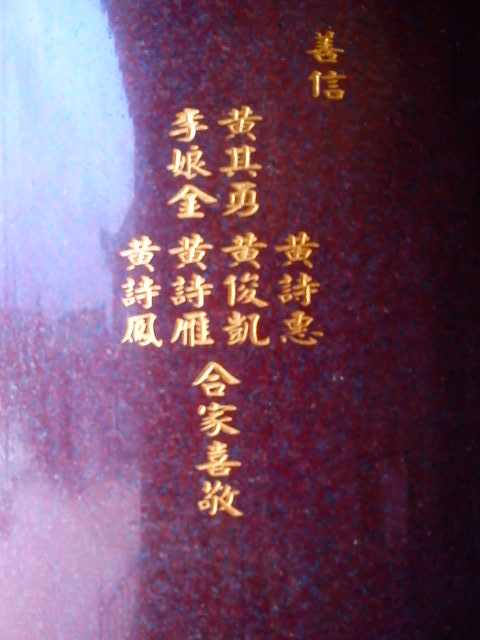 善信
黃其勇
李娘金
黃詩惠
黃俊凱
黃詩雁
黃詩鳳
合家喜敬